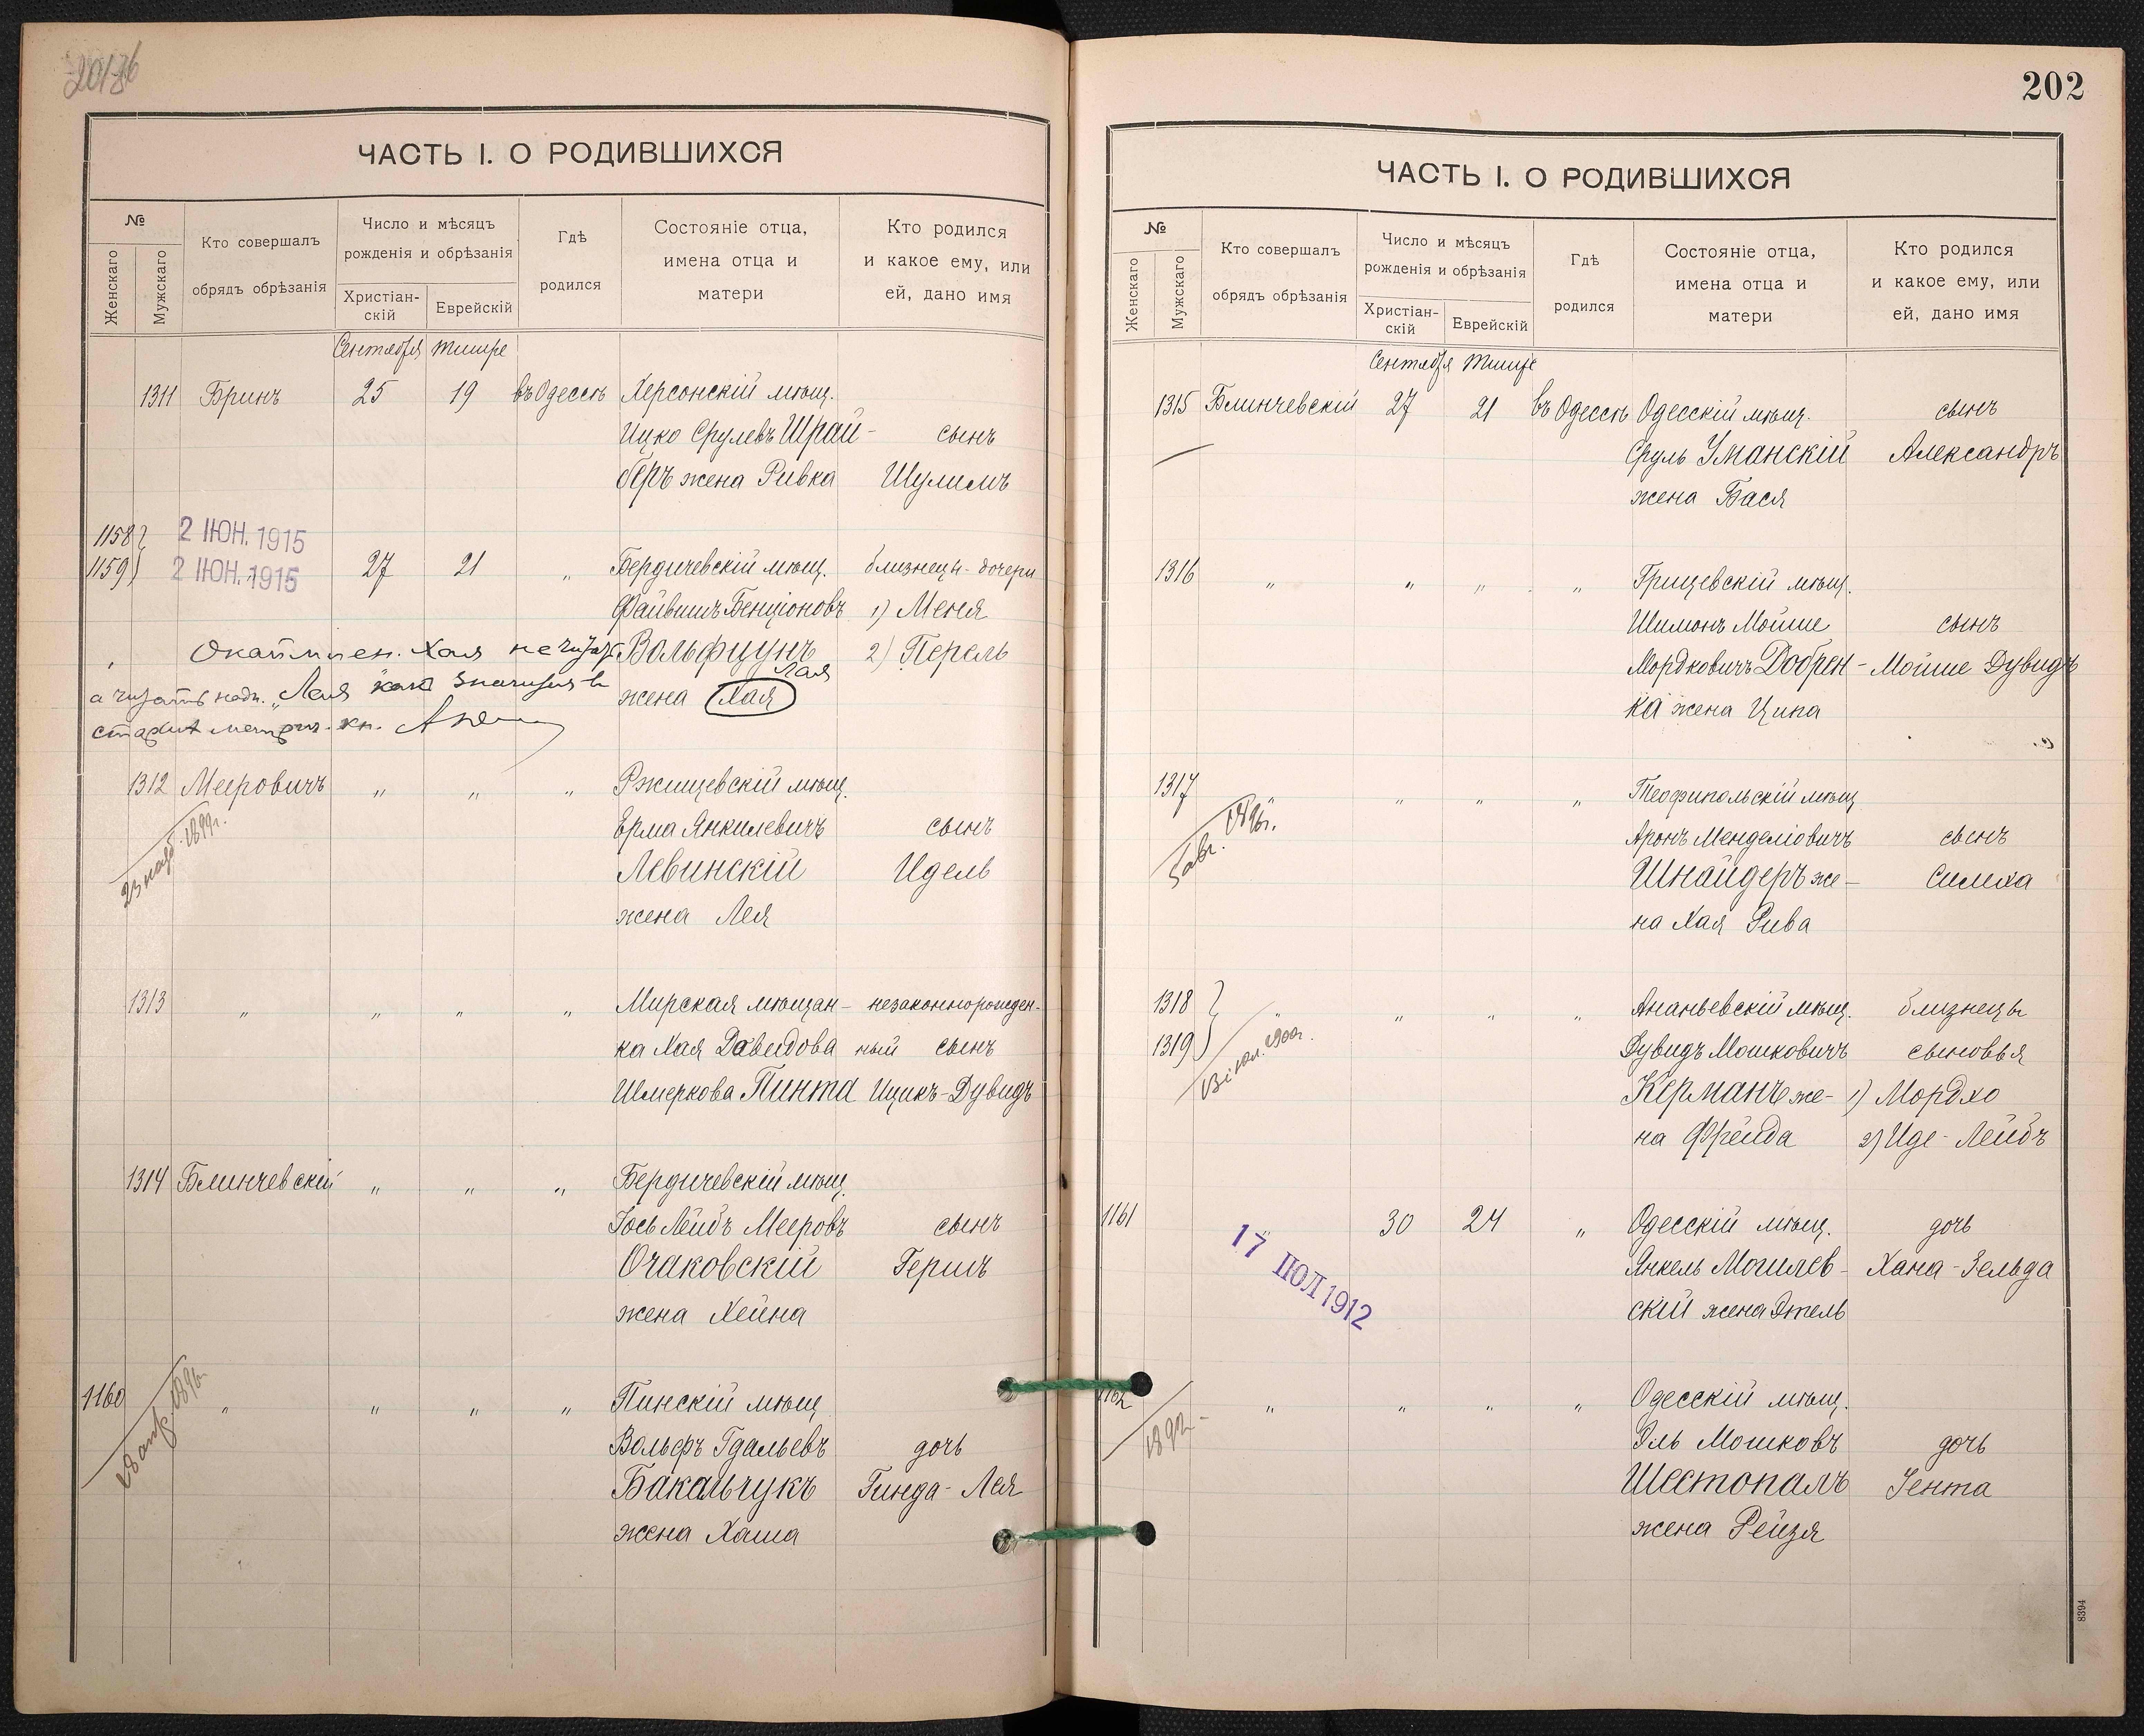 ЧАСТЬ I. О РОДИВШИХСЯ
№
Женскаго
Мужскаго
Кто совершалъ
обрядъ обрѣзанія
Число и мѣсяцъ
рожденія и обрѣзанія
Христіан-
скій
Еврейскій
Гдѣ
родился
Состояніе отца,
имена отца и
матери
Кто родился
и какое ему, или
ей, дано имя
Сентября Тишре
1311 Бринъ 25 19 въ Одессѣ Херсонскій мѣщ.
Ицко Срулевъ Шрай- сынъ
беръ жена Ривка Шулимъ
1158 2 ІЮН. 1915
1159 2 ІЮН. 1915 27 21 " Бердичевскій мѣщ. близнецы-дочери
Файвишъ Бенціоновъ 1) Меня
Вольфцунъ 2) Перель
Лая
жена Хая
Хая не читать
а читать надо „Лая
1312 Мееровичъ " " " Ржищевскій мѣщ.
23 1899г.
Ерма Янкилевичъ сынъ
Левинскій Идель
жена Лея
1313 " " " " Мирская мѣщан- незаконнорожден-
ка Хая Давидова ный сынъ
Шмеркова Пинта Ицикъ-Дувидъ
1314 Блинчевскій " " " Бердичевскій мѣщ.
Іось Лейбъ Мееровъ сынъ
Очаковскій Гершъ
жена Хейна
1160 " " " " Пинскій мѣщ
1896
Вольфъ Гдальевъ дочь
Бакальчукъ Гинда-Лея
жена Хаша
202
ЧАСТЬ I. О РОДИВШИХСЯ
№
Женскаго
Мужскаго
Кто совершалъ
обрядъ обрѣзанія
Число и мѣсяцъ
рожденія и обрѣзанія
Христіан-
скій
Еврейскій
Гдѣ
родился
Состояніе отца,
имена отца и
матери
Кто родился
и какое ему, или
ей, дано имя
Сентября Тишре
1315 Блинчевскій 27 21 въ Одессѣ Одесскій мѣщ. сынъ
Сруль Уманскій Александръ
жена Бася
1316 " " " " Грицевскій мѣщ.
Шимонъ Мойше сынъ
Мордковичъ Добрен- Мойше Дувидъ
ка жена Ципа
1317 " " " " Теофипольскій мѣщ
5 авг. 1896г.
Аронъ Менделіовичъ сынъ
Шнайдеръ же- Симха
на Хая Рива
1318 " " " " Ананьевскій мѣщ. близнецы
1319 Дувидъ Мошковичъ сыновья
1900г.
Керманъ же- 1) Мордхо
на Фрейда 2) Иде-Лейбъ
1161 30 24 " Одесскій мѣщ. дочь
17 ІЮЛ 1912
Янкель Могилев- Хана-Зельда
скій жена Этель
1162 " " " " Одесскій мѣщ.
1892
Эль Мошковъ дочь
Шестопалъ Іента
жена Рейзя
8394